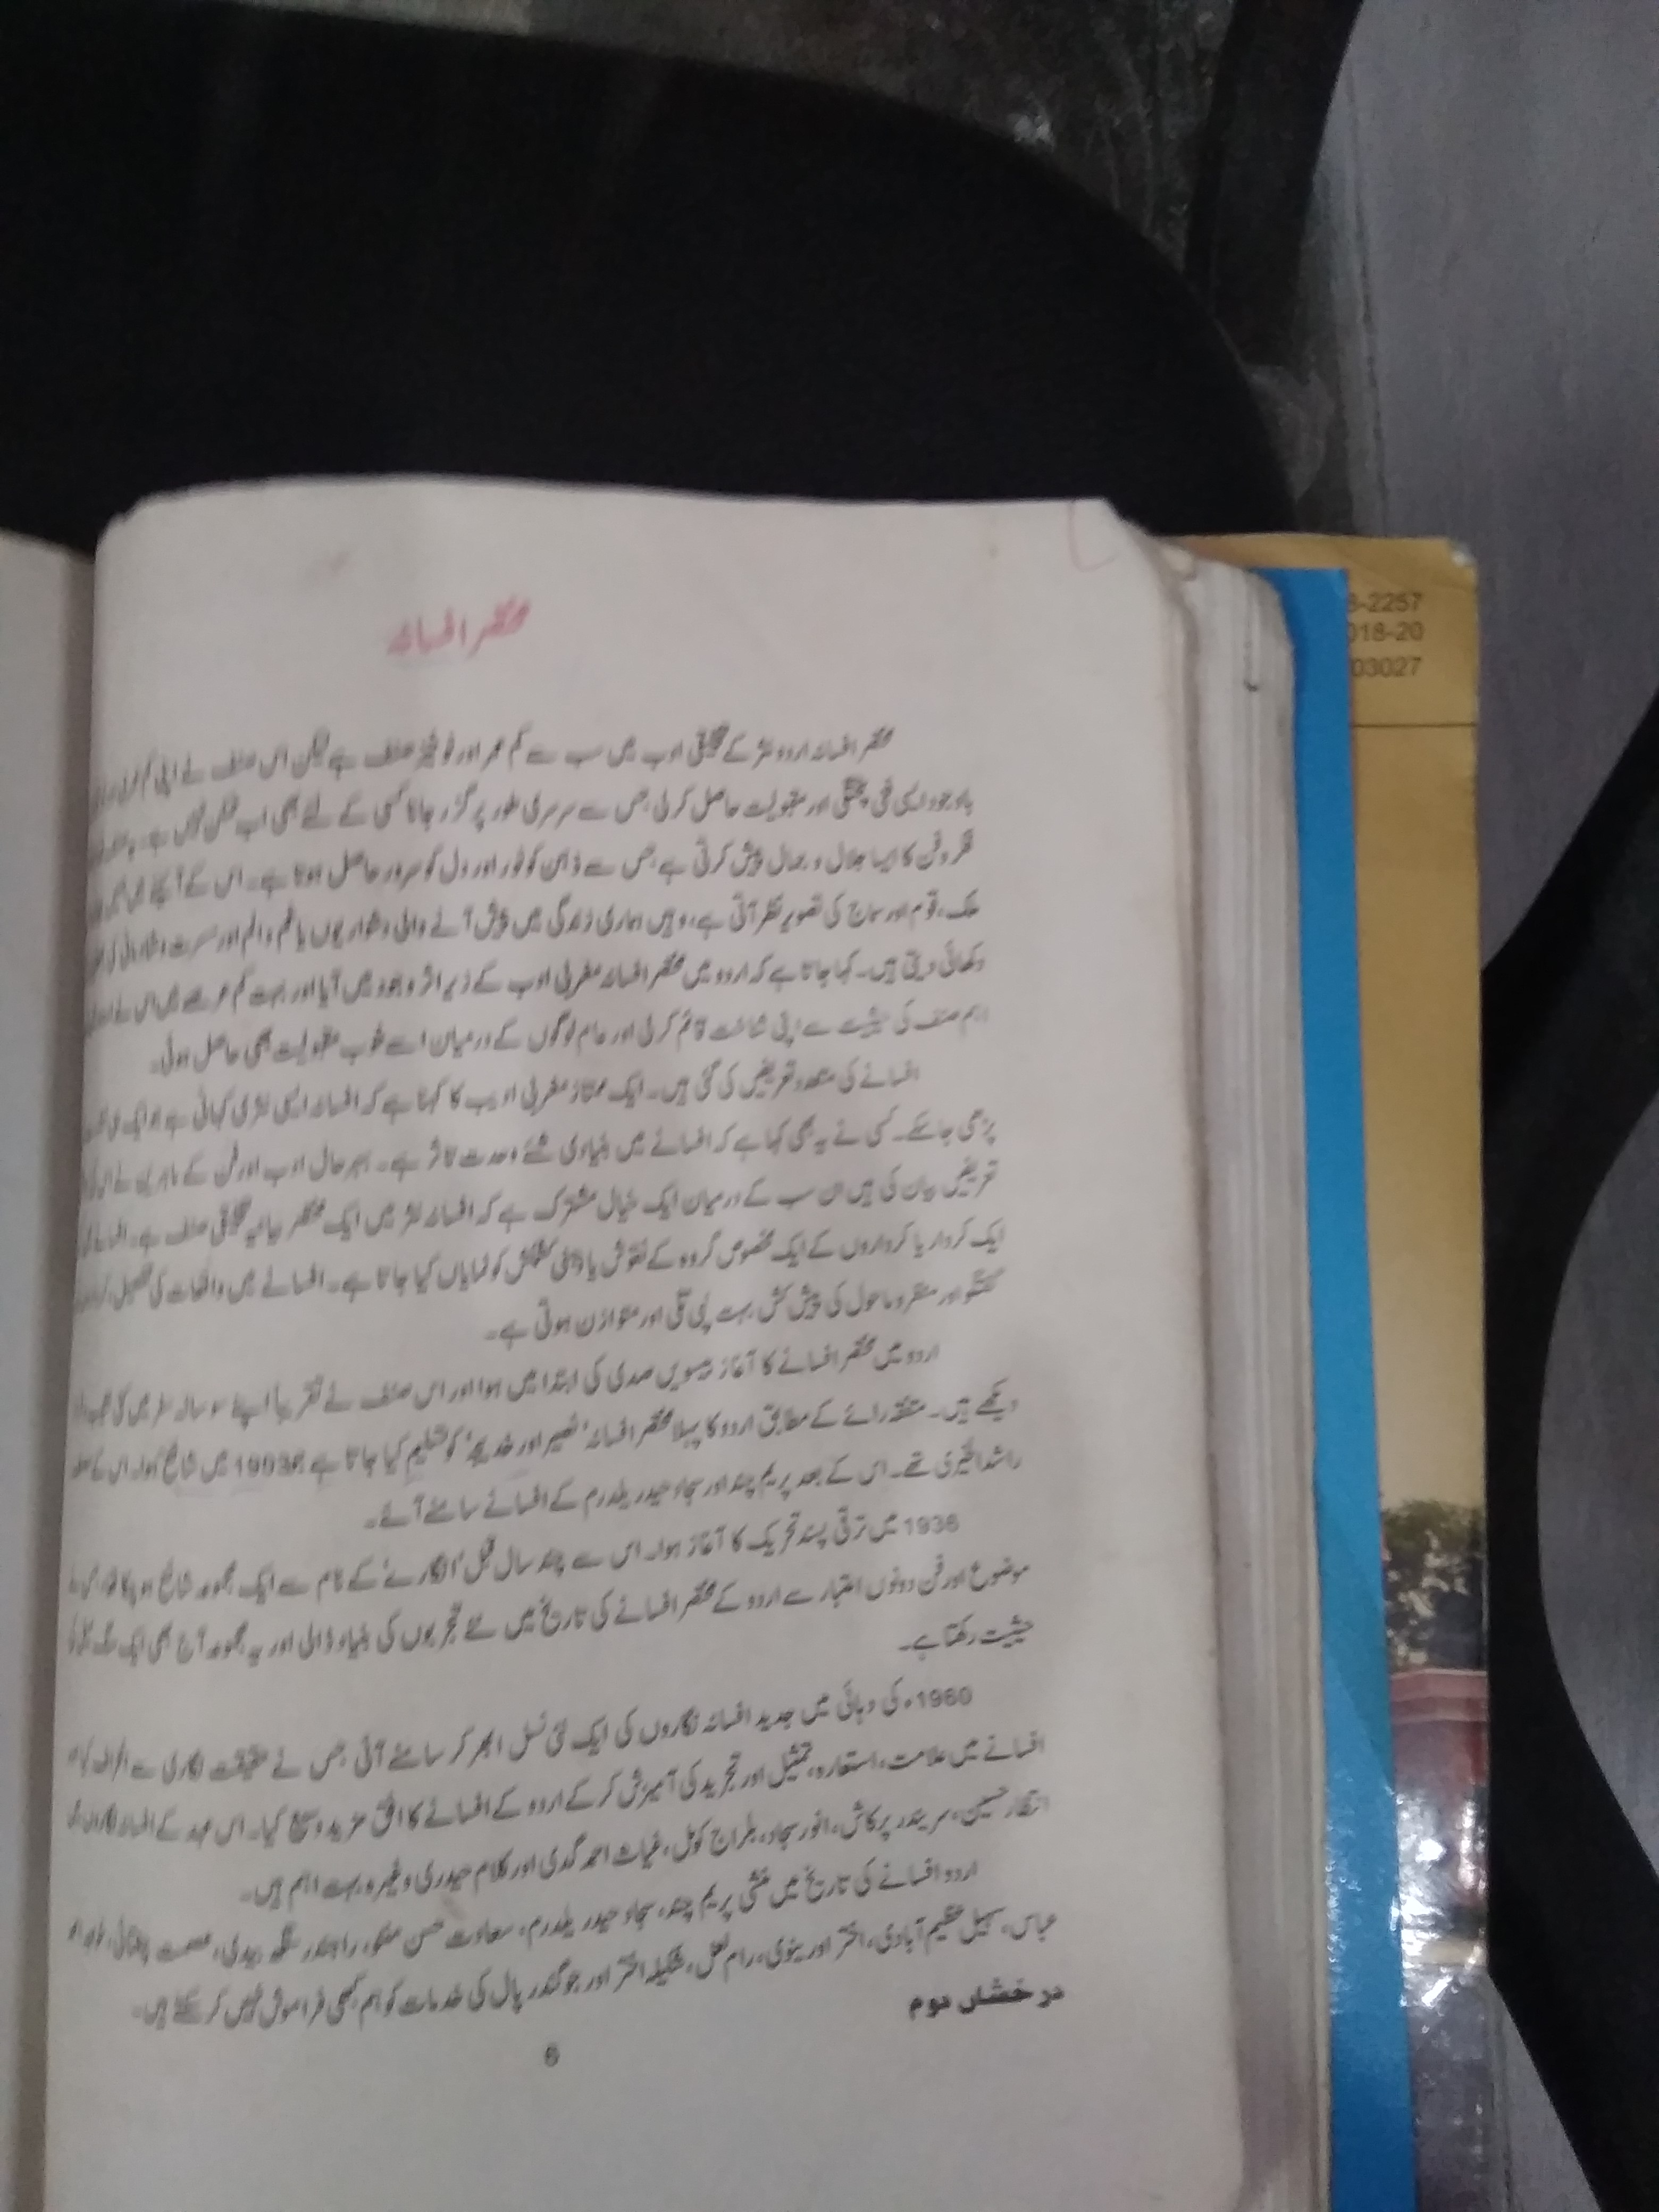 مختصر افسانہ
مختصر افسانہ اردو نثر کے تخلیقی ادب میں سب سے کم عمر اور نوخیز صنف ہے لیکن اس صنف نے اپنی کم عمری
باوجود ایسی فنی پختگی اور مقبولیت حاصل کرلی جس سے سرسری طور پر گزر جانا کسی کے لئے بھی اب ممکن نہیں ہے۔
فکر و فن کا ایسا جلال و جمال پیش کرتی ہے جس سے ذہن کو نور اور دل کو سرور حاصل ہوتا ہے۔ اس کے آئینے میں
ملک، قوم اور سماج کی تصویر نظر آتی ہے، وہیں ہماری زندگی میں پیش آنے والی دشواریوں یا غم و الم اور مسرت و شادمانی کی
دکھائی دیتی ہیں۔ کہا جاتا ہے کہ اردو میں مختصر افسانہ مغربی ادب کے زیر اثر وجود میں آیا اور بہت کم عرصے میں اس نے
اہم صنف کی حیثیت سے اپنی شناخت قائم کرلی اور عام لوگوں کے درمیان اسے خوب مقبولیت بھی حاصل ہوئی۔
افسانے کی متعدد تعریفیں کی گئی ہیں۔ ایک ممتاز مغربی ادیب کا کہنا ہے کہ افسانہ ایسی نثری کہانی ہے جو ایک
پڑھی جاسکے۔ کسی نے یہ بھی کہا ہے کہ افسانے میں بنیادی شئے وحدت تاثر ہے۔ بہر حال ادب اور فن کے ماہرین نے اس کی
تعریفیں بیان کی ہیں ان سب کے درمیان ایک خیال مشترک ہے کہ افسانہ نثر میں ایک مختصر بیانیہ تخلیقی صنف ہے۔ افسانے
ایک کردار یا کرداروں کے ایک مخصوص گروہ کے نقوش یا ذہنی کشمکش کو نمایاں کیا جاتا ہے۔ افسانے میں واقعات کی تفصیل،
گفتگو اور منظر و ماحول کی پیش کش بہت نپی تلی اور متوازن ہوتی ہے۔
اردو میں مختصر افسانے کا آغاز بیسویں صدی کی ابتدا میں ہوا اور اس صنف نے تقریباً اپنے سو سالہ سفر میں کئی
دیکھے ہیں۔ متفقہ رائے کے مطابق اردو کا پہلا مختصر افسانہ 'نصیر اور خدیجہ' کو تسلیم کیا جاتا ہے جو 1903 میں شائع ہوا۔ اس کے
راشد الخیری تھے۔ اس کے بعد پریم چند اور سجاد حیدر یلدرم کے افسانے سامنے آئے۔
1936 میں ترقی پسند تحریک کا آغاز ہوا۔ اس سے چند سال قبل 'انگارے' کے نام سے ایک مجموعہ شائع ہو چکا تھا۔
موضوع اور فن دونوں اعتبار سے اردو کے مختصر افسانے کی تاریخ میں نئے تجربوں کی بنیاد ڈالی اور یہ مجموعہ آج بھی ایک سنگ میل کی
حیثیت رکھتا ہے۔
1960ء کی دہائی میں جدید افسانہ نگاروں کی ایک نئی نسل ابھر کر سامنے آئی جس نے حقیقت نگاری سے انحراف کیا اور
افسانے میں علامت، استعارہ، تمثیل اور تجرید کی آمیزش کرکے اردو کے افسانے کا افق مزید وسیع کیا۔ اس عہد کے افسانہ نگاروں میں
انتظار حسین، سریندر پرکاش، انور سجاد، بلراج کومل، غیاث احمد گدی اور کلام حیدری وغیرہ بہت اہم ہیں۔
اردو افسانے کی تاریخ میں منشی پریم چند، سجاد حیدر یلدرم، سعادت حسن منٹو، راجندر سنگھ بیدی، عصمت چغتائی،
عباس، سہیل عظیم آبادی، اختر اورینوی، رام لعل، شکیلہ اختر اور جوگندر پال کی خدمات کو ہم کبھی فراموش نہیں کرسکتے ہیں۔
درخشاں دوم
6
8-2257
018-20
03027